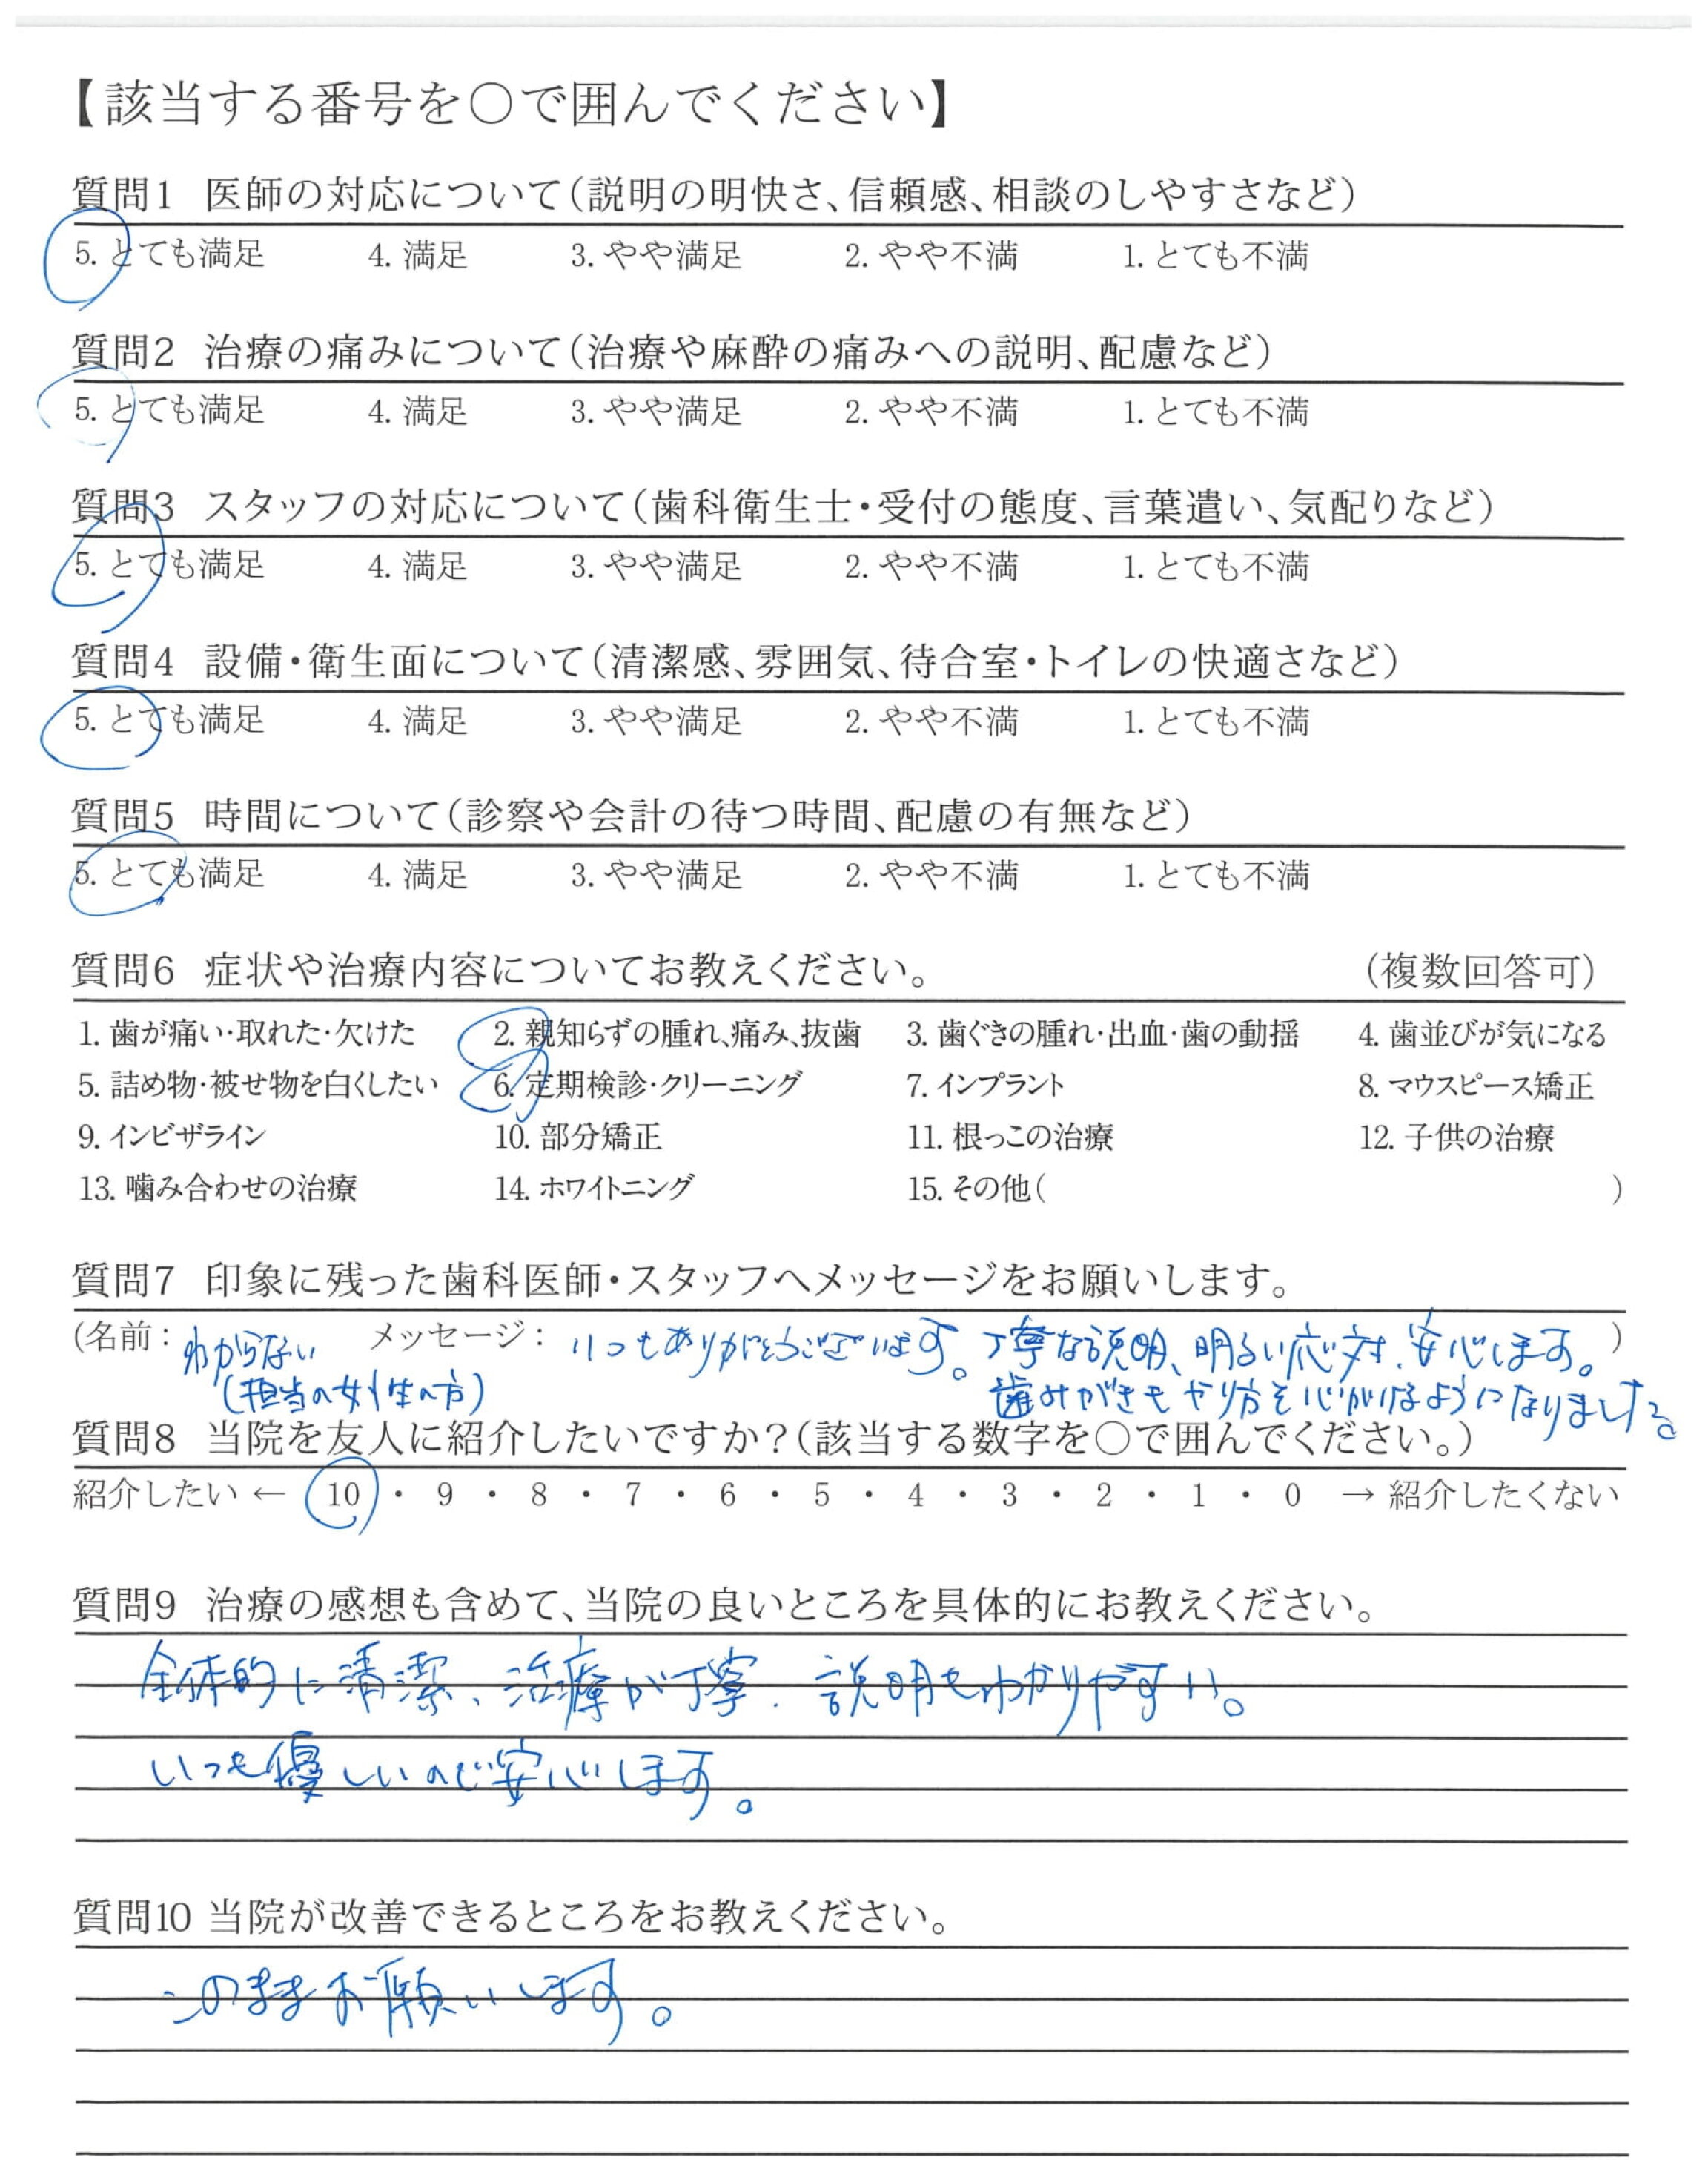 【該当する番号を○で囲んでください】
質問1 医師の対応について(説明の明快さ、信頼感、相談のしやすさなど)
5. とても満足 4. 満足 3. やや満足 2. やや不満 1. とても不満
質問2 治療の痛みについて(治療や麻酔の痛みへの説明、配慮など)
5. とても満足 4. 満足 3. やや満足 2. やや不満 1. とても不満
質問3 スタッフの対応について(歯科衛生士・受付の態度、言葉遣い、気配りなど)
5. とても満足 4. 満足 3. やや満足 2. やや不満 1. とても不満
質問4 設備・衛生面について(清潔感、雰囲気、待合室・トイレの快適さなど)
5. とても満足 4. 満足 3. やや満足 2. やや不満 1. とても不満
質問5 時間について(診察や会計の待つ時間、配慮の有無など)
5. とても満足 4. 満足 3. やや満足 2. やや不満 1. とても不満
質問6 症状や治療内容についてお教えください。 (複数回答可)
1. 歯が痛い・取れた・欠けた 2. 親知らずの腫れ、痛み、抜歯 3. 歯ぐきの腫れ・出血・歯の動揺 4. 歯並びが気になる
5. 詰め物・被せ物を白くしたい 6. 定期検診・クリーニング 7. インプラント 8. マウスピース矯正
9. インビザライン 10. 部分矯正 11. 根っこの治療 12. 子供の治療
13. 噛み合わせの治療 14. ホワイトニング 15. その他( )
質問7 印象に残った歯科医師・スタッフへメッセージをお願いします。
(名前: わからない メッセージ: いつもありがとうございます。丁寧な説明、明るい応対、安心します。)
(担当の女性の方) 歯みがきもやり方を心がけるようになりました。
質問8 当院を友人に紹介したいですか?(該当する数字を○で囲んでください。)
紹介したい ← 10 ・ 9 ・ 8 ・ 7 ・ 6 ・ 5 ・ 4 ・ 3 ・ 2 ・ 1 ・ 0 → 紹介したくない
質問9 治療の感想も含めて、当院の良いところを具体的にお教えください。
全体的に清潔、治療が丁寧、説明もわかりやすい。
いつも優しいので安心します。
質問10 当院が改善できるところをお教えください。
このままお願いします。